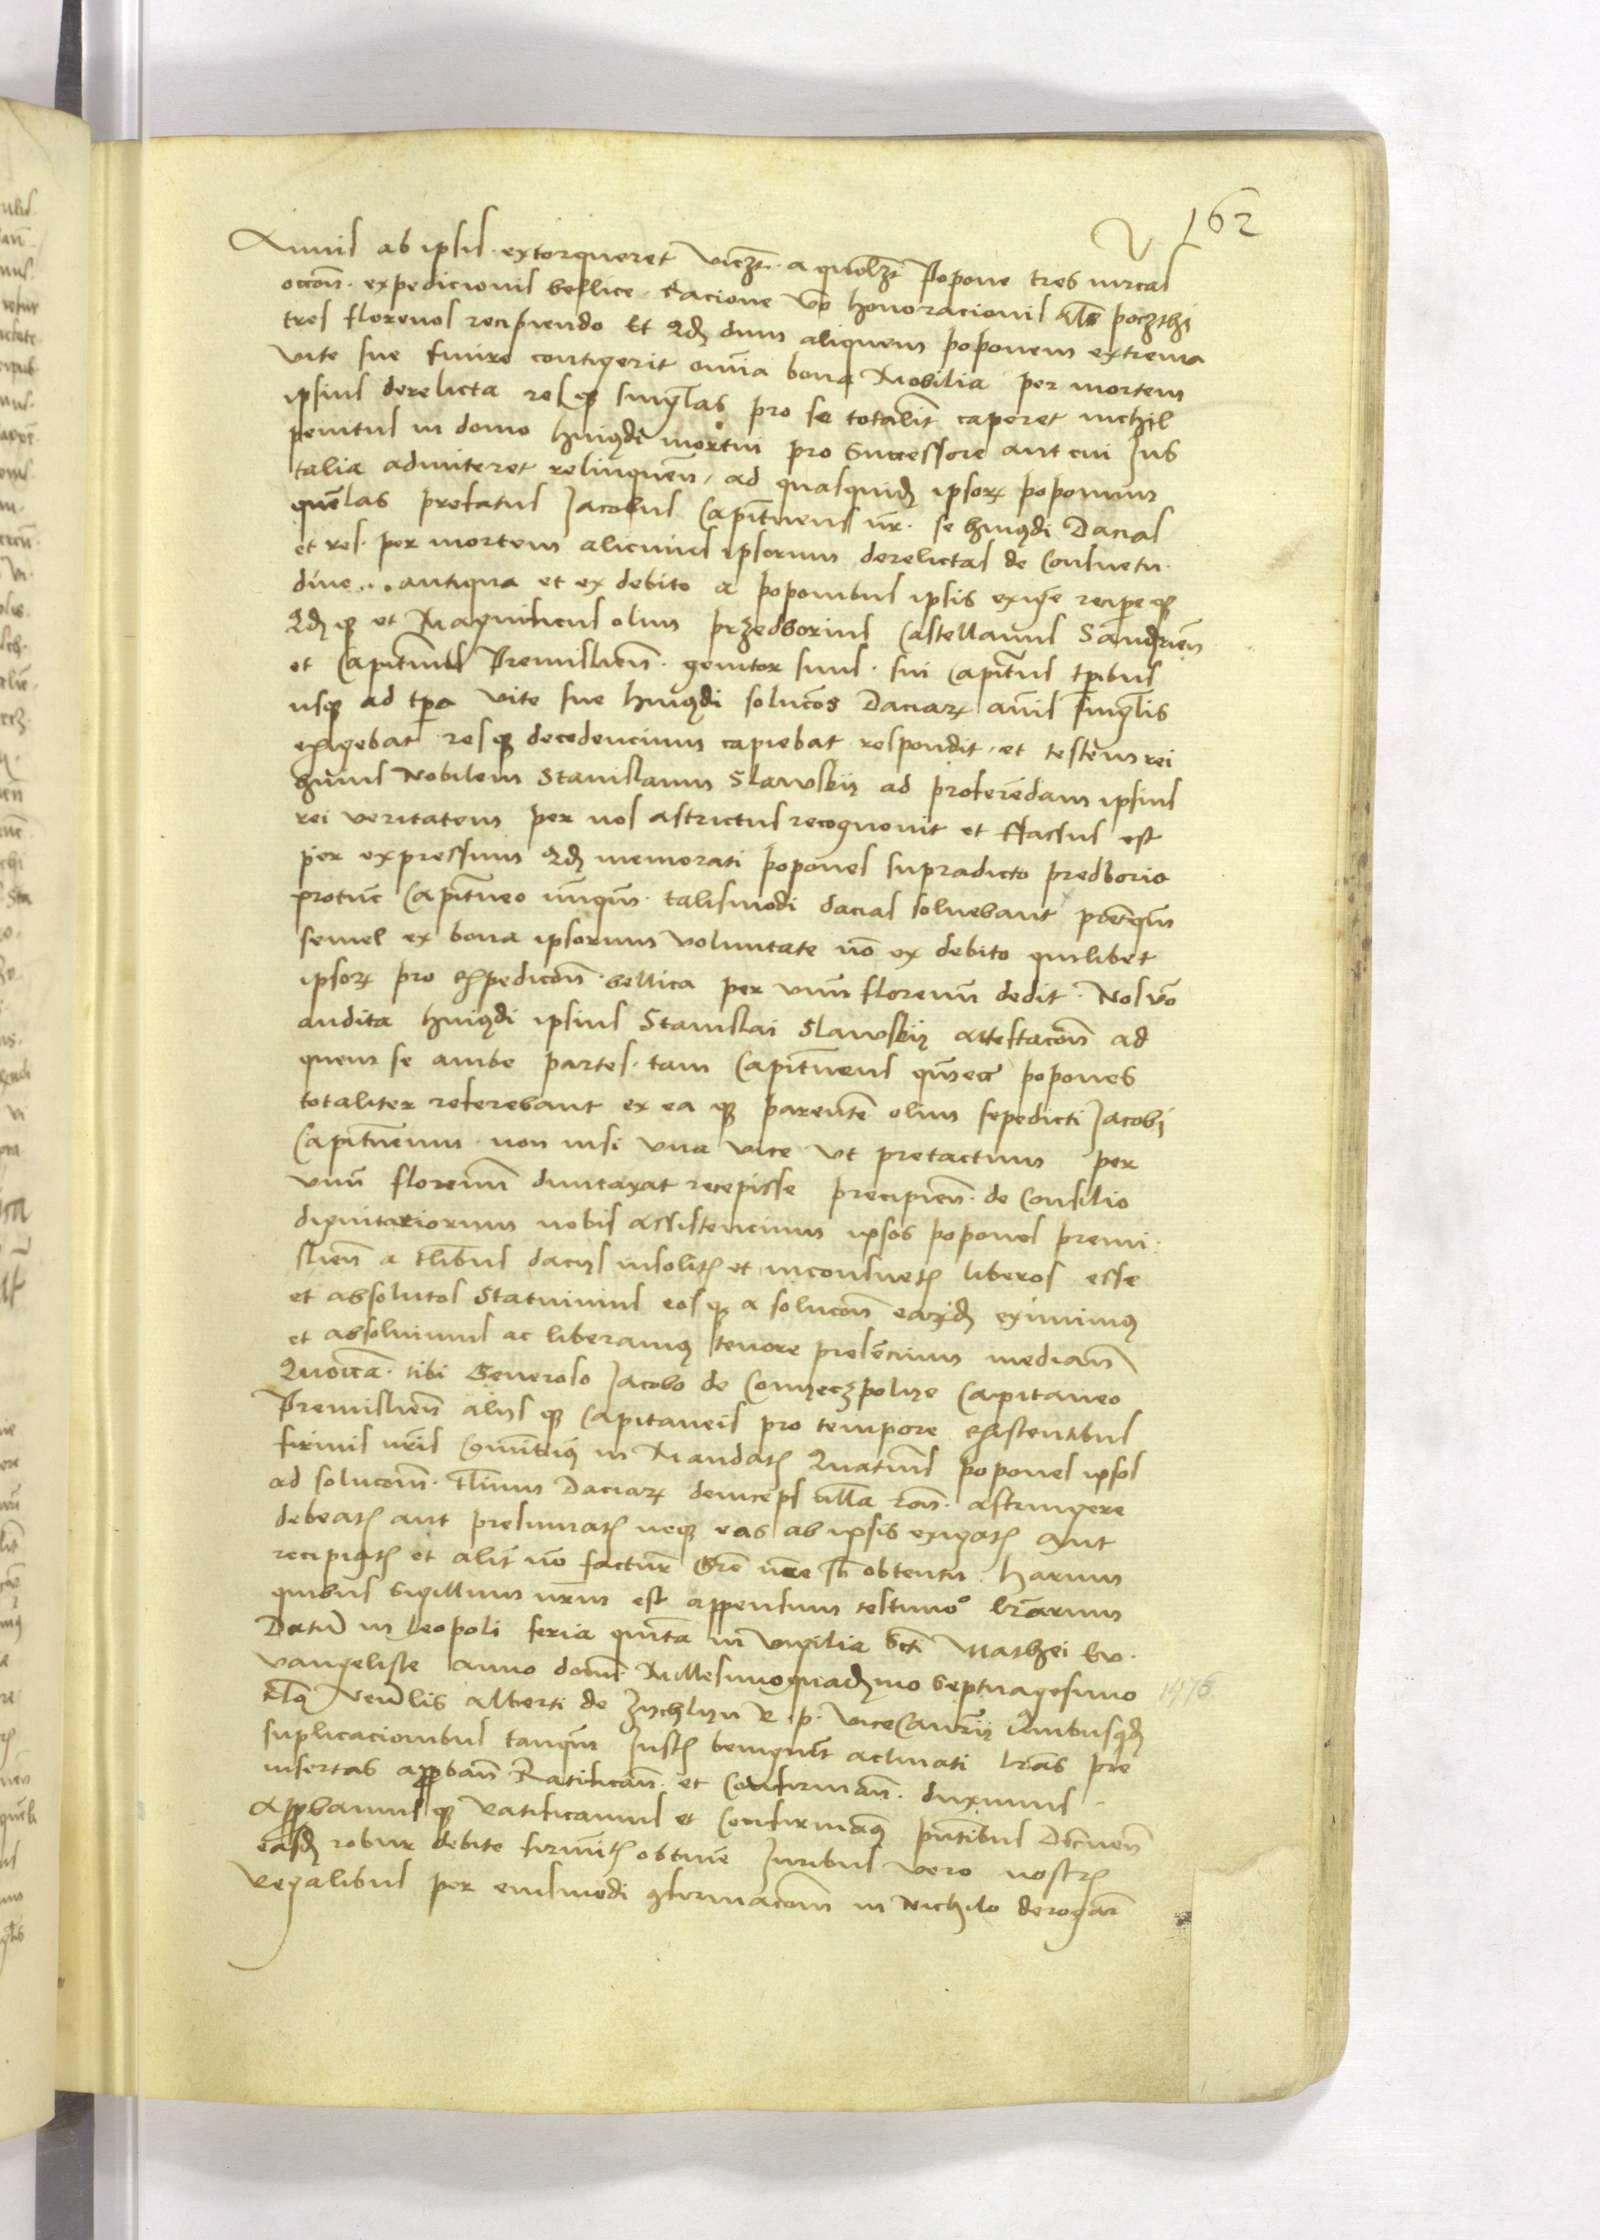 162
Annis ab ipsis extorqueret vicz̃t a quol̃zt Popone tres mrcas
occon̄. expedicionis bellice. Racione vo honoracionis al̃s poczthi
tres florenos recipiendo Et Qd dum aliquem poponem extrema
vite sue finire contigerit omia bona Mobilia per mortem
ipsius derelicta resq singlas pro se totalit caperet nichil
penitus in domo huiusdi mortui pro Successore aut cui Jus
talia admiteret relinquen̄, ad quasquid ipsorᵯ poponum
quelas prefatus Jacobus Capitneus nr. se huiusdi Dacias
et res per mortem alicuius ipsorum derelictas de Consuetu-
dine antiqua et ex debito a poponibus ipsis exige recipe q
Qd q et Magnificus olim przedborius Castellanus Sandrien̄
et Capitneus Premislien̄. genitor suus. sui Capitnus tpibus
usq ad tpa vite sue huiusdi solucos Daciarᵯ annis singlis
exigebat resq decedencium capiebat respondit. et testem rei
huius Nobilem Stanislaum Slawskij ad proferendam ipsius
rei veritatem per nos astrictus recognovit et ffassus est
per expressum Qd memorati popones supradicto predborio
protunc Capitneo nunqm talismodi dacias soluebant preterqm
semel ex bona ipsorum voluntate no ex debito quilibet
ipsorᵯ pro Expedicon̄ bellica per unu florenu dedit. Nos vo
audita huiusdi ipsius Stanislai Slawskij attestacon̄ ad
quem se ambe partes. tam Capitneus qm ecc popones
totaliter referebant ex ea q parente olim sepedicti Jacobi
Capitneum. non nisi una vice ut pretactum per
unu florenu dumtaxat recepisse precipien̄. de Consilio
dignitariorum nobis assistencium ipsos popones premi-
slien̄ a tlibus dacijs insolitis et inconsuetis liberos esse
et absolutos Statuimus eosq a solucon̄ earᵯd eximimus
et absoluimus ac liberamus tenore presencium median̄
Quocca. tibi Generoso Jacobo de Conyeczpolye Capitaneo
Premislien̄ alijsq Capitaneis pro tempore existentibus
firmis nris Comittius in Mandatis Quatinus popones ipsos
ad solucom. tlium Daciarᵯ deinceps ulla ron̄. astringere
debeatis aut presumatis neq eas ab ipsis exigatis aut
recipiatis et alit no factur Gre nre sb obtentu. Harum
quibus Sigillum nrum est appensum testimoº lrarum
Datu in Leopoli feria quinta in vigilia Scti Mathei Ew-
vangeliste anno domi Millesimoquadmo Septuagesimo 1476
Rla Venlis alberti de Zychlyn R. p. viceCanrij
suplicacionibus tanqm Justis benignit aclinati lras pre
insertas approban̄ Ratifican̄ et Confirman̄. duximus
Approbamusq ratificamus et Confirmaus pntibus Decnen̄
easd robur debite firmitis obtine Juribus vero nostris
Regalibus per eiusmodi confirmacom in Nichilo derogan̄